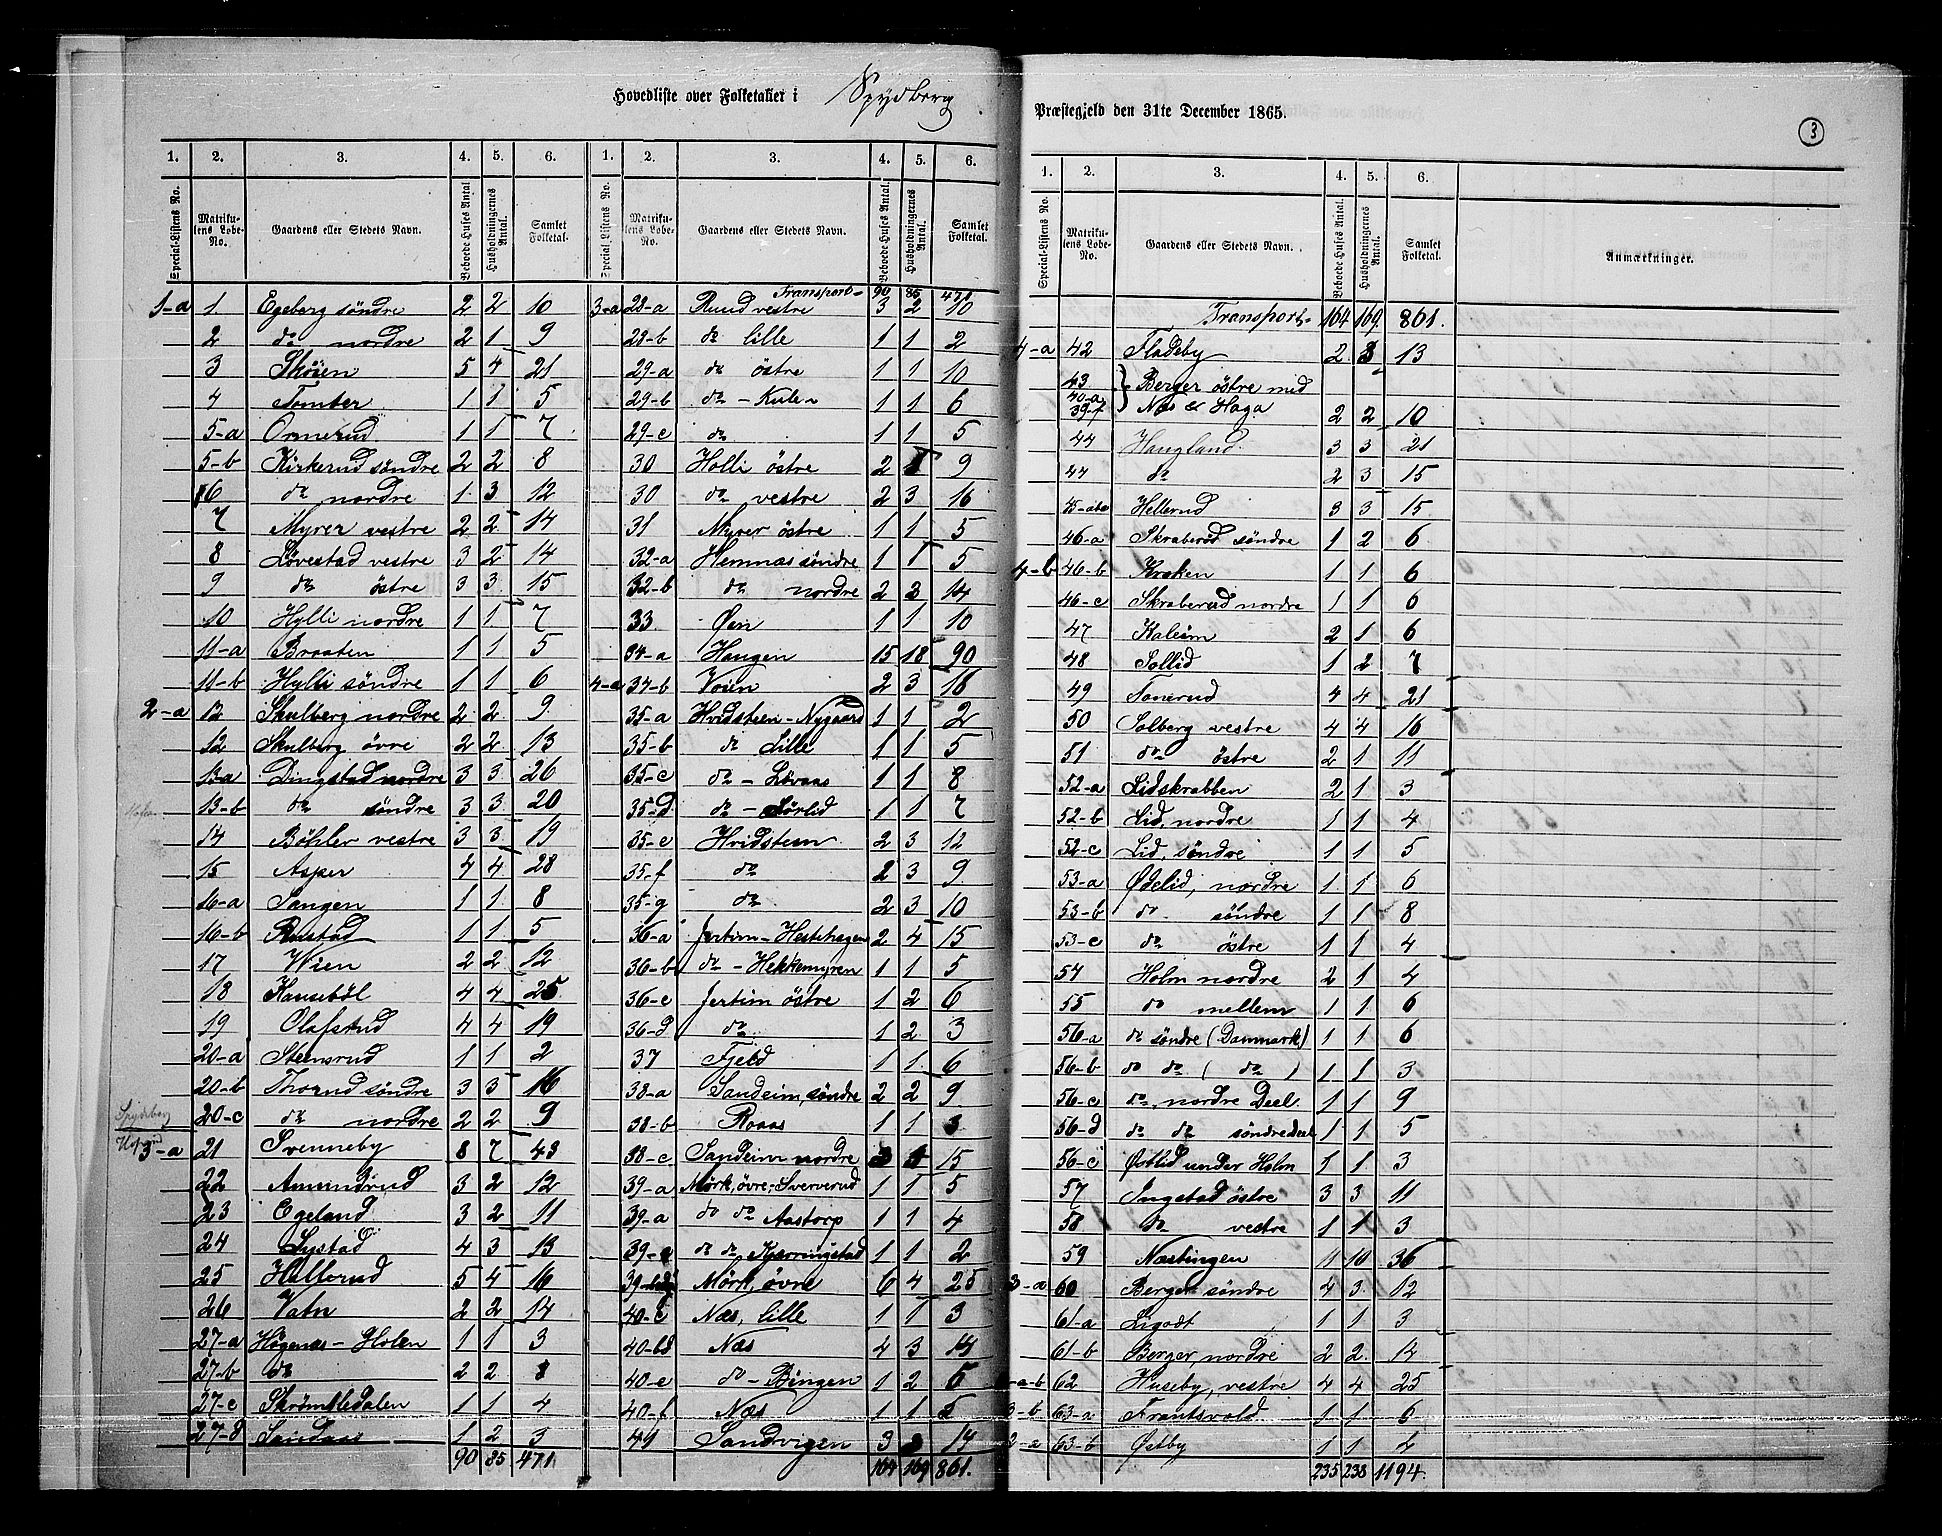 Hovedliste over Folketallet i Spydberg Præstegjeld den 31te December 1865.
3
1. 2. 3. 4. 5. 6. 1. 2. 3. 4. 5. 6.
Special-Listens No. Matrikulens Løbe-No. Gaardens eller Stedets Navn. Beboede Huses Antal Husholdningernes Antal. Samlet Folketal.
Special-Listens No. Matrikulens Løbe-No. Gaardens eller Stedets Navn. Beboede Huses Antal. Husholdningernes Antal. Samlet Folketal.
1-a 1 Egeberg söndre 2 2 10
2 do nordre 2 1 9
3 Sköien 5 4 21
4 Tomter 1 1 5
5-a Ormerud 1 1 7
5-b Kirkerud söndre 2 2 8
6 do nordre 1 3 12
7 Myrer vestre 2 2 14
8 Lövestad vestre 3 2 14
9 do östre 3 3 15
10 Hylli nordre 1 1 7
11-a Braaten 1 1 5
11-b Hylli söndre 1 1 6
2-a 12 Skulberg nordre 2 2 9
12 Skulberg övre 2 2 13
13-a Dingstad nordre 3 3 26
13-b do söndre 3 3 20
14 Böhler vestre 3 3 19
15 Asper 4 4 28
16-a Tangen 1 1 8
16-b Rustad 1 1 5
17 Wien 2 2 12
18 Kauseböl 4 4 25
19 Olafsrud 4 4 19
20-a Steensrud 1 1 2
20-b Thorud söndre 3 3 16
Spydeberg
20-c do nordre 2 2 9
3-a 21 Svenneby 8 7 43
22 Amundrud 3 2 12
23 Egeland 3 2 11
24 Lystad 4 3 13
25 Hallerud 5 4 16
26 Vatn 2 2 14
27-a Högenæs-Holen 1 1 3
27-b do 2 2
27-c Skrömtledalen 1 1 4
27-d Sandaas 1 2 3
90 85 471
Transport 90 85 471
3-a 28-a Ruud vestre 3 2 10
28-b do lille 1 1 2
29-a do östre 1 1 10
29-b do - Kulen 1 1 6
29-c do 1 1 5
30 Holli östre 2 1 9
30 do vestre 2 3 16
31 Myrer östre 1 1 5
32-a Hemnæs söndre 1 1 5
32-b do nordre 2 3 14
33 Øen 1 1 10
34-a Haugen 15 18 90
4-a 34-b Voien 2 3 18
35-a Hvidsteen-Nygaard 1 1 2
35-b do Lille 1 1 5
35-c do - Lövaas 1 1 8
35-d do - Lörlid 1 1 7
35-e Hvidsteen 2 3 12
35-f do 2 3 9
35-g do 2 3 10
36-a Jertim-Hestehagen 2 4 15
36-b do - Hekkemyren 1 1 5
36-c Jertim östre 1 2 6
36-d do 1 2 3
37 Fjeld 1 1 6
38-a Sandeim, söndre 2 2 9
38-b Roaas 1 1 3
38-c Sandeim nordre 15
39-a Mörk, övre-Sververud 1 1 5
39-a do do Aastorp 1 1 4
39- do do Kjærringstad 1 1 2
39- Mörk, övre 6 4 25
40-c Næs, lille 1 1 3
40-bd Næs 4 3 14
40-e do - Bingen 1 2 6
40-f Næs 1 1 5
41 Sandvigen 3 3 14
164 169 861.
1. 2. 3. 4. 5. 6.
Special-Listens No. Matrikulens Løbe-No. Gaardens eller Stedets Navn. Beboede Huses Antal. Husholdningernes Antal. Samlet Folketal. Anmærkninger.
Transport 164 169 861.
4-a 42 Fladeby 2 3 13
43 Berger östre med
40-a
39-f Næs & Haga 2 2 10
44 Haugland 3 3 21
44 do 2 3 15
45-abc Hellerud 3 3 15
46-a Skraberud söndre 1 2 6
4-b 46-b Kraken 1 1 6
46-c Skraberud nordre 1 1 6
47 Kaleim 2 1 6
48 Sollid 1 2 7
49 Tonerud 4 4 21
50 Solberg vestre 4 4 16
51 do östre 2 1 11
52-a Lidskrabben 2 1 3
52-b Lid, nordre 1 1 4
52-c Lid, söndre 1 1 5
53-a Ødelid, nordre 1 1 6
53-b do söndre 1 1 8
53-c do östre 1 1 4
54 Holm nordre 2 1 4
55 do mellem 1 1 6
56-a do söndre (Danmark) 1 1 6
56-b do do ( do ) 1 1 3
56-c do, nordre Deel 1 1 9
56-d do do söndre Deel 1 1 5
56-e Østlid under Holm 1 1 3
57 Ingstad östre 3 3 11
58 do vestre 1 1 3
59 Næstingen 11 10 36
3-a 60 Berger söndre 4 3 12
61-a Ligodt 1 1 3
61-b Berger, nordre 2 2 14
-a-b 62 Huseby, vestre 4 4 25
3-b 63-a Frantsvold 1 1 6
2-a 63-b Østby 1 1 4
235 238 1194.